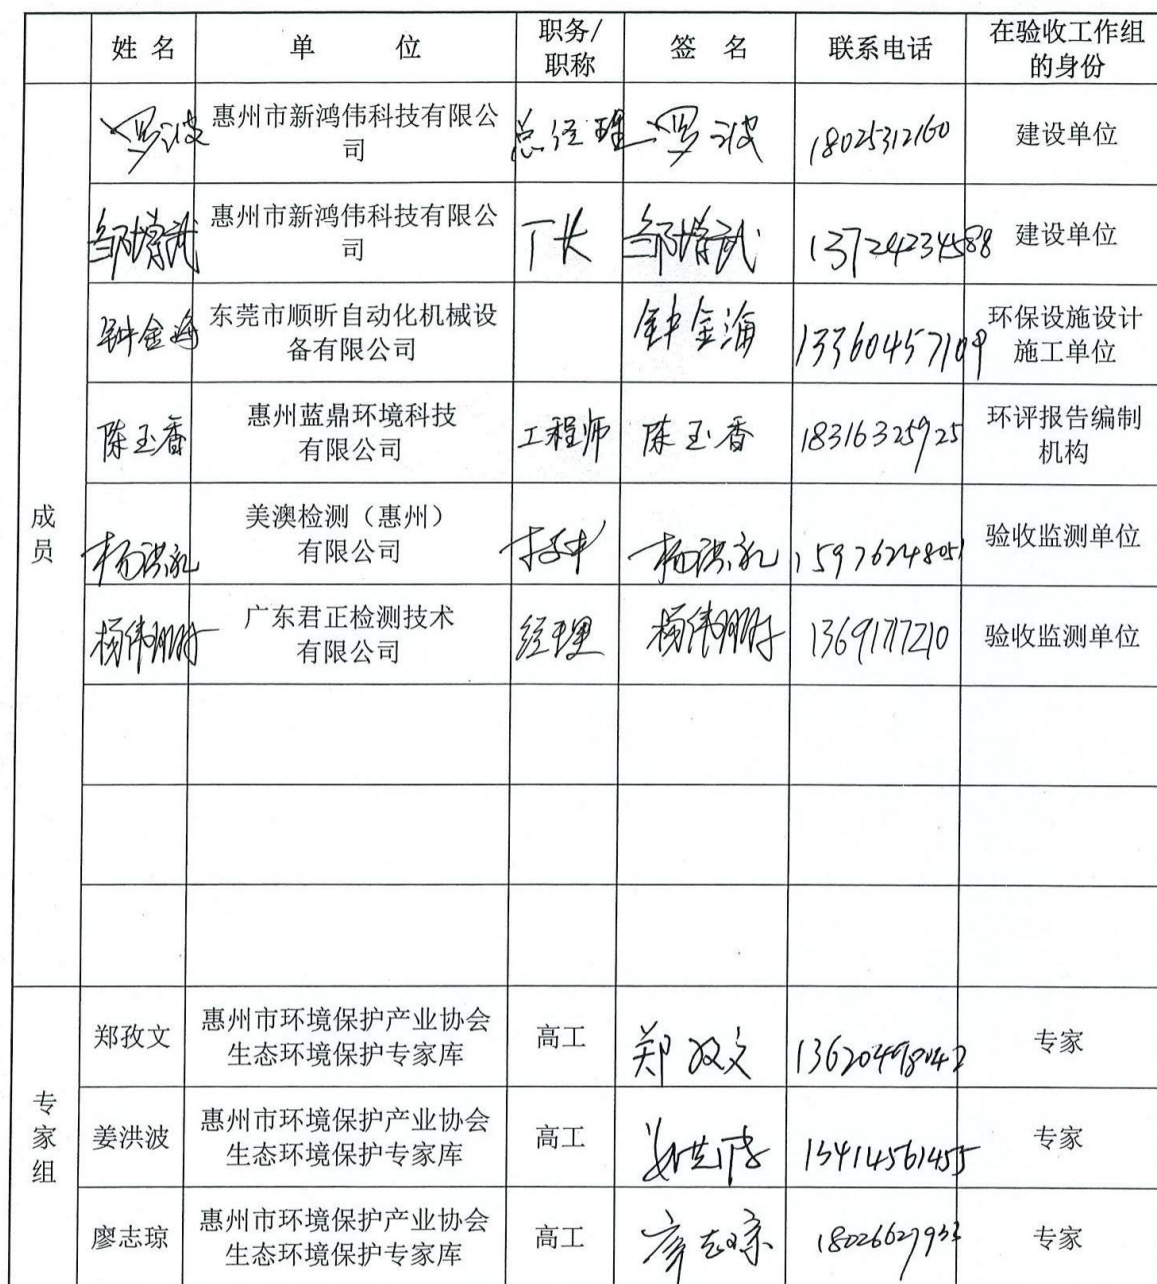 姓 名 单 位 职务/职称 签 名 联系电话 在验收工作组的身份
成员
罗波 惠州市新鸿伟科技有限公司 总经理 罗波 18025312160 建设单位
邹增武 惠州市新鸿伟科技有限公司 厂长 邹增武 建设单位
钟金海 东莞市顺昕自动化机械设备有限公司 钟金海 13360457109 环保设施设计施工单位
陈玉香 惠州蓝鼎环境科技有限公司 工程师 陈玉香 18316325925 环评报告编制机构
美澳检测（惠州）有限公司 15976248051 验收监测单位
广东君正检测技术有限公司 经理 验收监测单位
专家组
郑孜文 惠州市环境保护产业协会生态环境保护专家库 高工 郑孜文 13620498042 专家
姜洪波 惠州市环境保护产业协会生态环境保护专家库 高工 姜洪波 13414561455 专家
廖志琼 惠州市环境保护产业协会生态环境保护专家库 高工 廖志琼 18026627933 专家